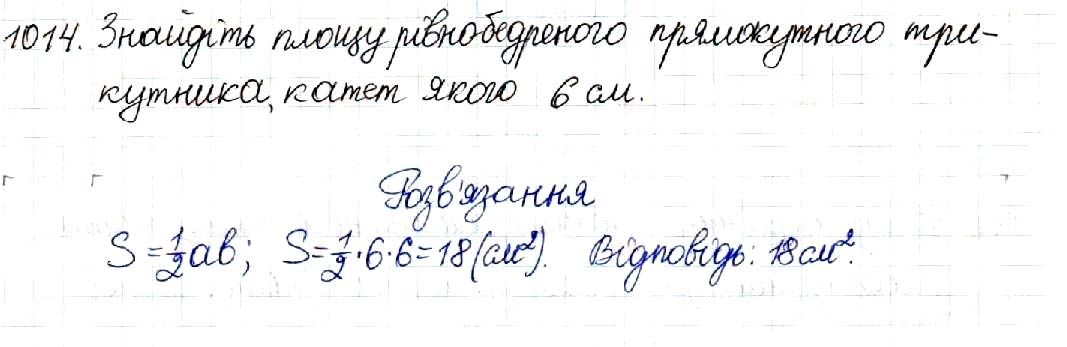 1014. Знайдіть площу рівнобедреного прямокутного три-
кутника, катет якого 6 см.
Розв'язання
S = 1/2 ab; S = 1/2 · 6 · 6 = 18 (см²). Відповідь: 18 см².